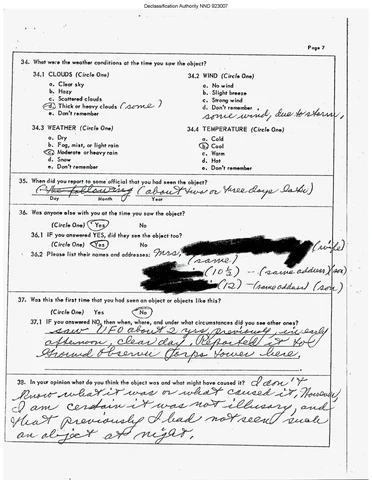 Declassification Authority NND 923007
Page 7
34. What were the weather conditions at the time you saw the object?
34.1 CLOUDS (Circle One)
a. Clear sky
b. Hazy
c. Scattered clouds
d. Thick or heavy clouds (some)
e. Don't remember
34.2 WIND (Circle One)
a. No wind
b. Slight breeze
c. Strong wind
d. Don't remember
some wind, due to storm.
34.3 WEATHER (Circle One)
a. Dry
b. Fog, mist, or light rain
c. Moderate or heavy rain
d. Snow
e. Don't remember
34.4 TEMPERATURE (Circle One)
a. Cold
b. Cool
c. Warm
d. Hot
e. Don't remember
35. When did you report to some official that you had seen the object?
(The following (about two or three days later)
Day Month Year
36. Was anyone else with you at the time you saw the object?
(Circle One) Yes No
36.1 IF you answered YES, did they see the object too?
(Circle One) Yes No
36.2 Please list their names and addresses: Mrs. (wife)
(same)
(10½) - (same address) (son)
(12) - (same address) (son)
37. Was this the first time that you had seen an object or objects like this?
(Circle One) Yes No
37.1 IF you answered NO, then when, where, and under what circumstances did you see other ones?
Saw UFO about 2 yrs. previously, in early
afternoon, clear day. Reported it to
Ground Observer Corps tower here.
38. In your opinion what do you think the object was and what might have caused it? I don't
know what it was or what caused it. However,
I am certain it was not illusory, and
that previously I had not seen such
an object at night.